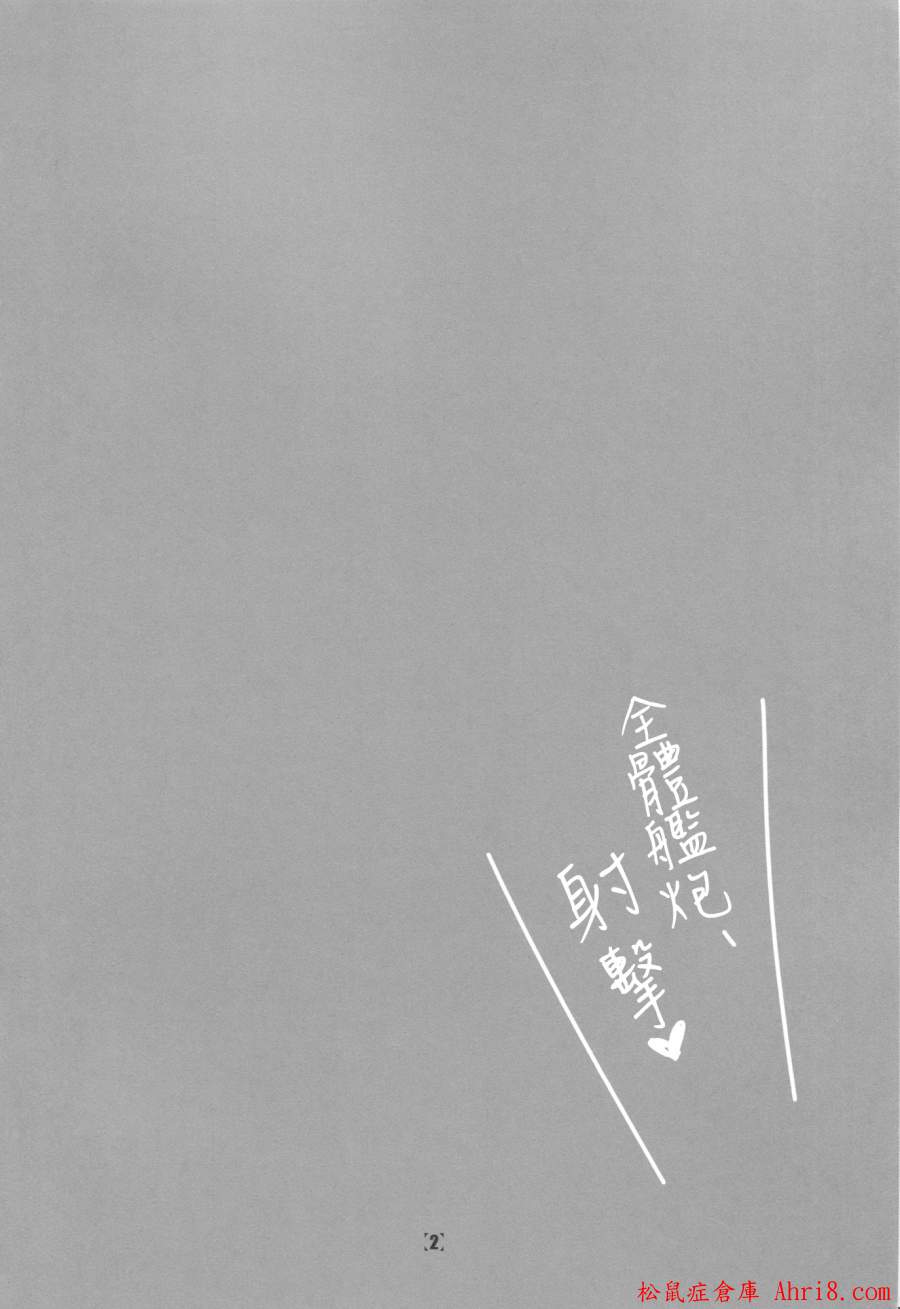 全體艦炮、
射擊♥
【2】
松鼠症倉庫 Ahri8.com